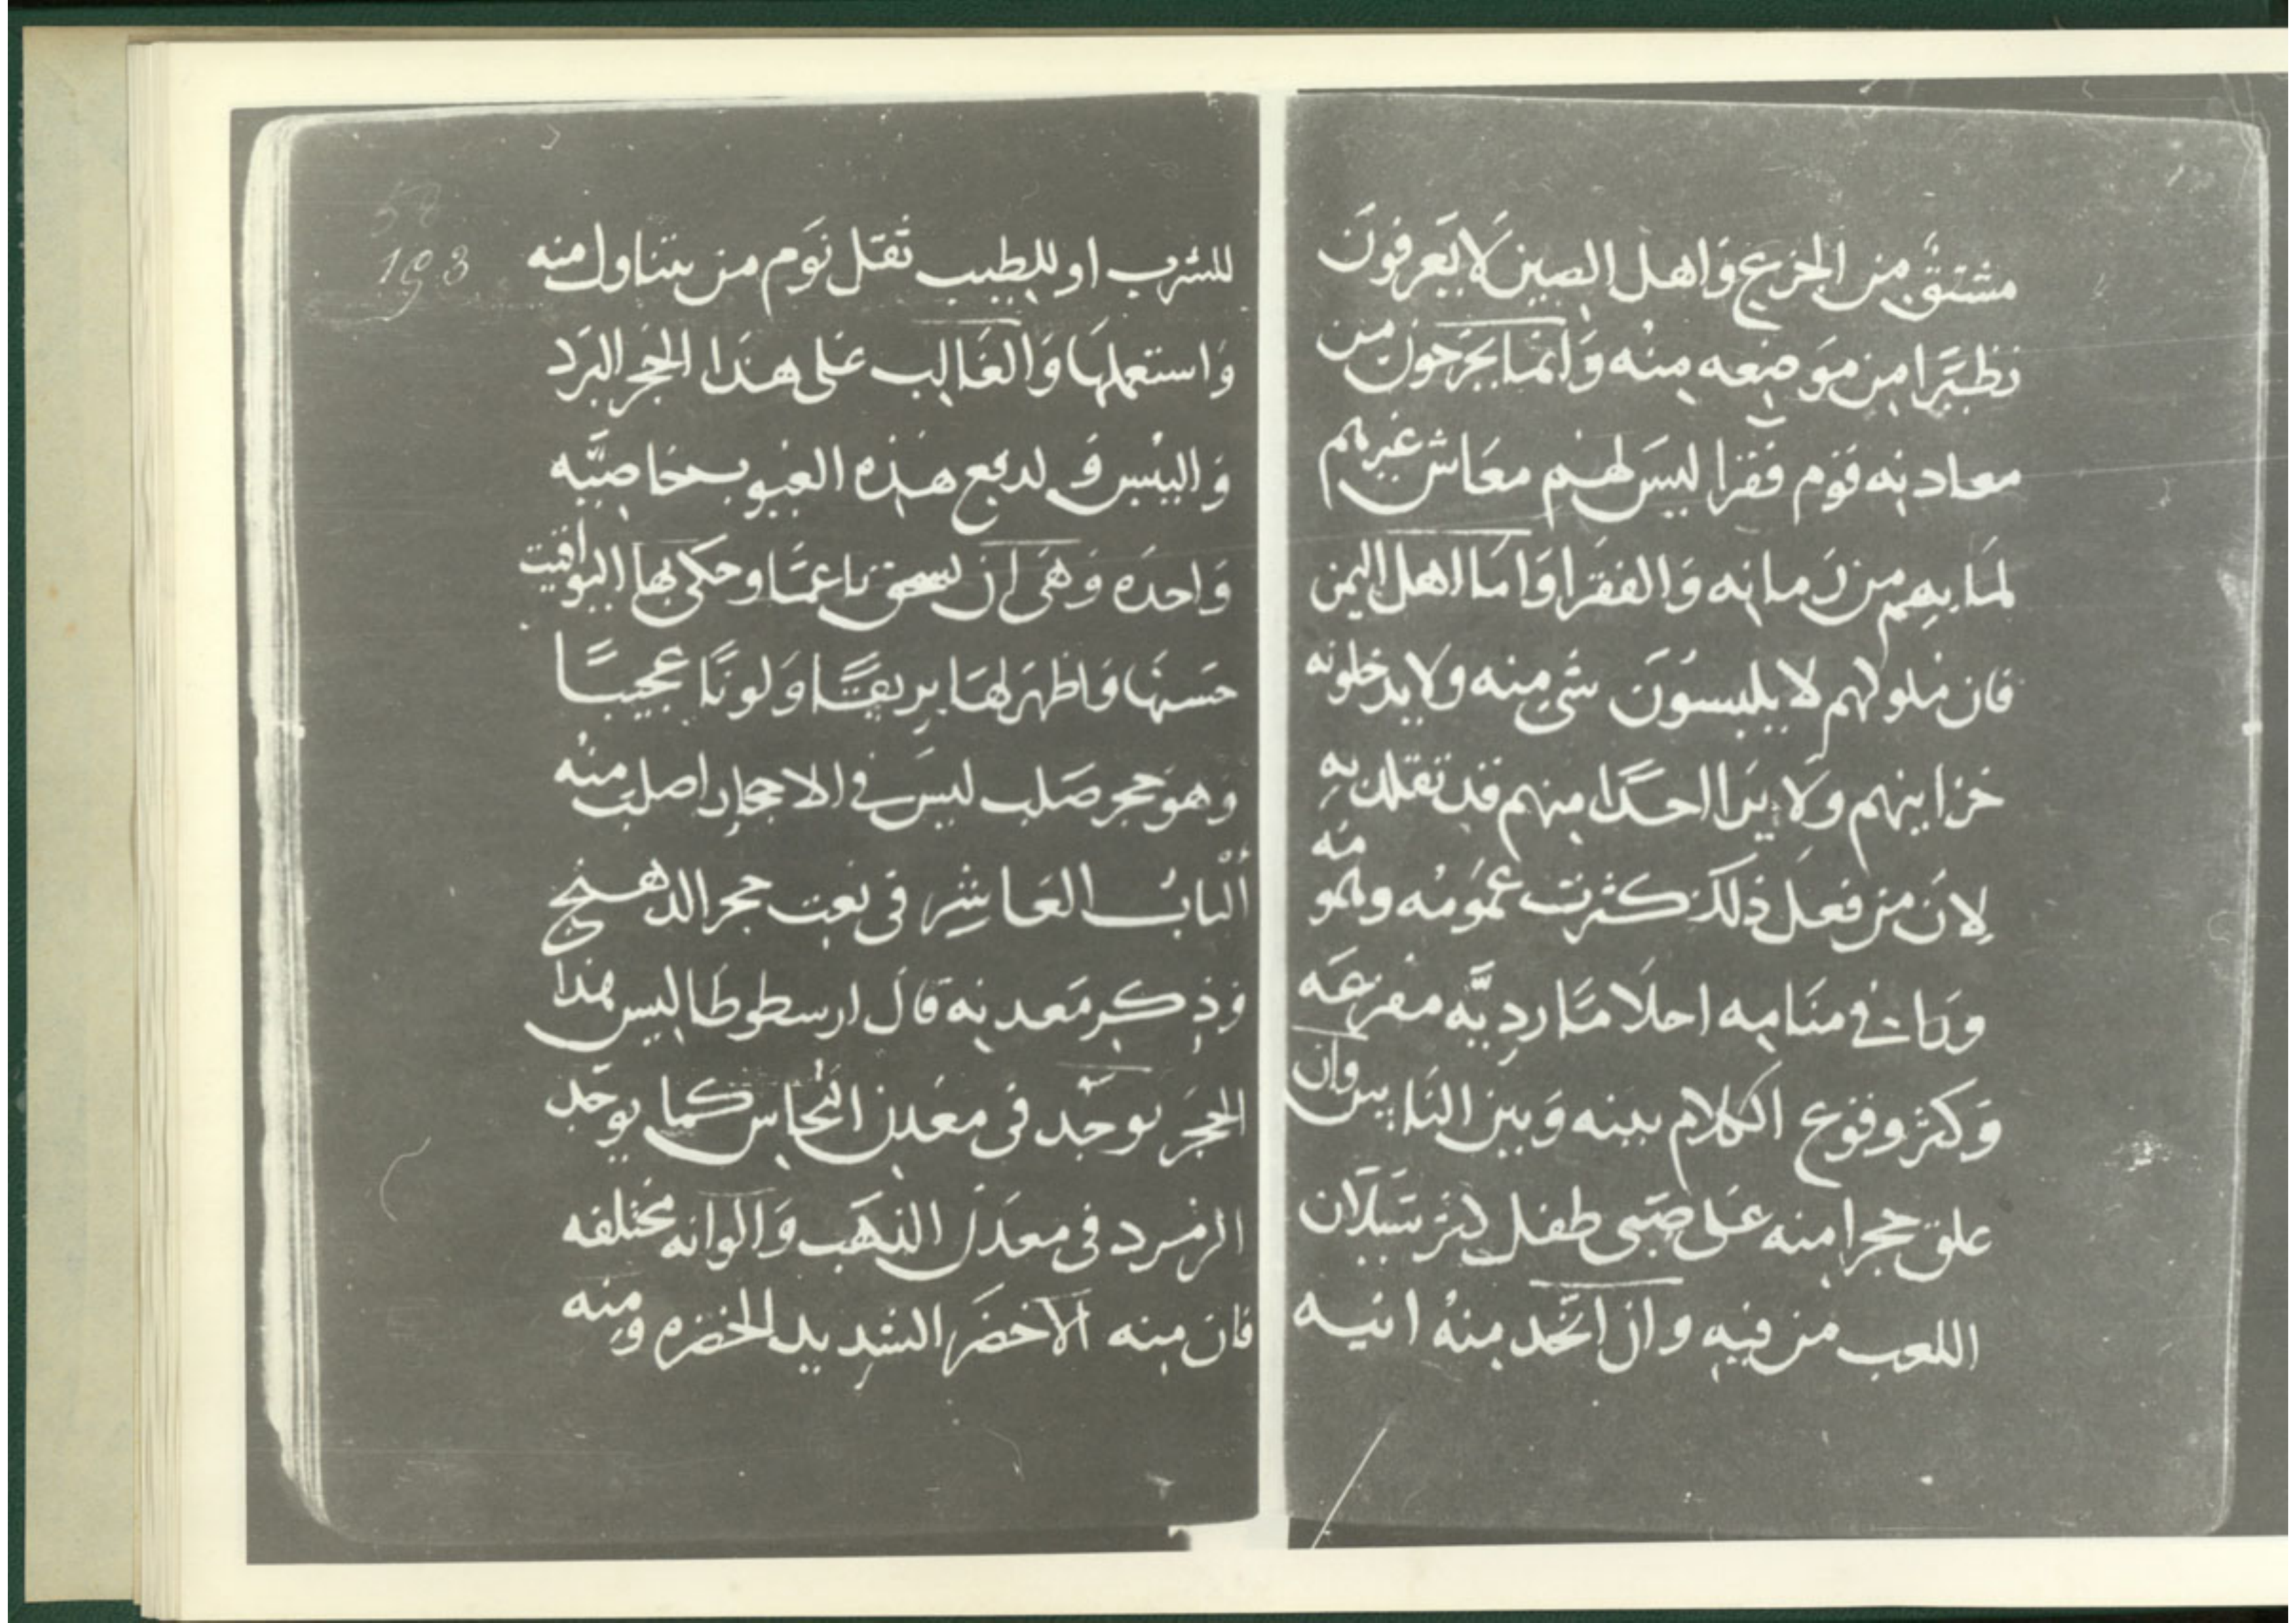 مشتقٌ من الجزع وَاهل الصين لَا يَعرفونَ
نظيَرا من موَضِعه مِنْه وَانما يخَرَجونَ من
معادنه قوَم فقرا ليسَ لهُم معَاش غيرهم
لمَا بِهِم من زَمانه وَالفقرا وَامَا اهل اليمن
فان ملولهم لا يلبسوُنَ شي منه ولا يدخلونه
خزاينهم ولَا يَرا احَدًا منهم قد تقلد بهِ
لِانَ من فعلَ ذلكَ كثرت غموَمُه وهمومه
وراى في منَامِه احلَامًا رديَّه مفزعَه
وَكثر وقوع الكلام بينه وَبين الناس وان
علق حجرا منه علىَ صَبى طفل كثر سَيَلَان
اللعب من فيهِ وان اتخد مِنهُ انيه
58
193
للشرب او للطبيب ثَقل نوَم من يتناول منه
وَاستعملهَا وَالغَالِب عَلى هذَا الحجَر البَرد
وَاليُبس وَ لدفع هذِه العيُوب خاصيَّه
وَاحدَه وَهيَ ان يسحق ناعمًا وحكى بها اليواقيت
حسَنهَا وَاظهَر لهَا بريقًا وَلونًا عجيبًا
وَهوَ حجر صَلب ليسَ في الاحجار اصلبَ منْه
اَلبابُ العَاشِر في نعت حجر الدهنج
وَذِكر مَعدنِه قالَ ارسطوطَاليس هذا
الحجَر يوجَد في معَدن النحُاس كما يوجَد
الزمرد في معدَن الذهَب وَالوانه مخَتلفه
فان منه الاخضَر الشديد الخضره ومِنه